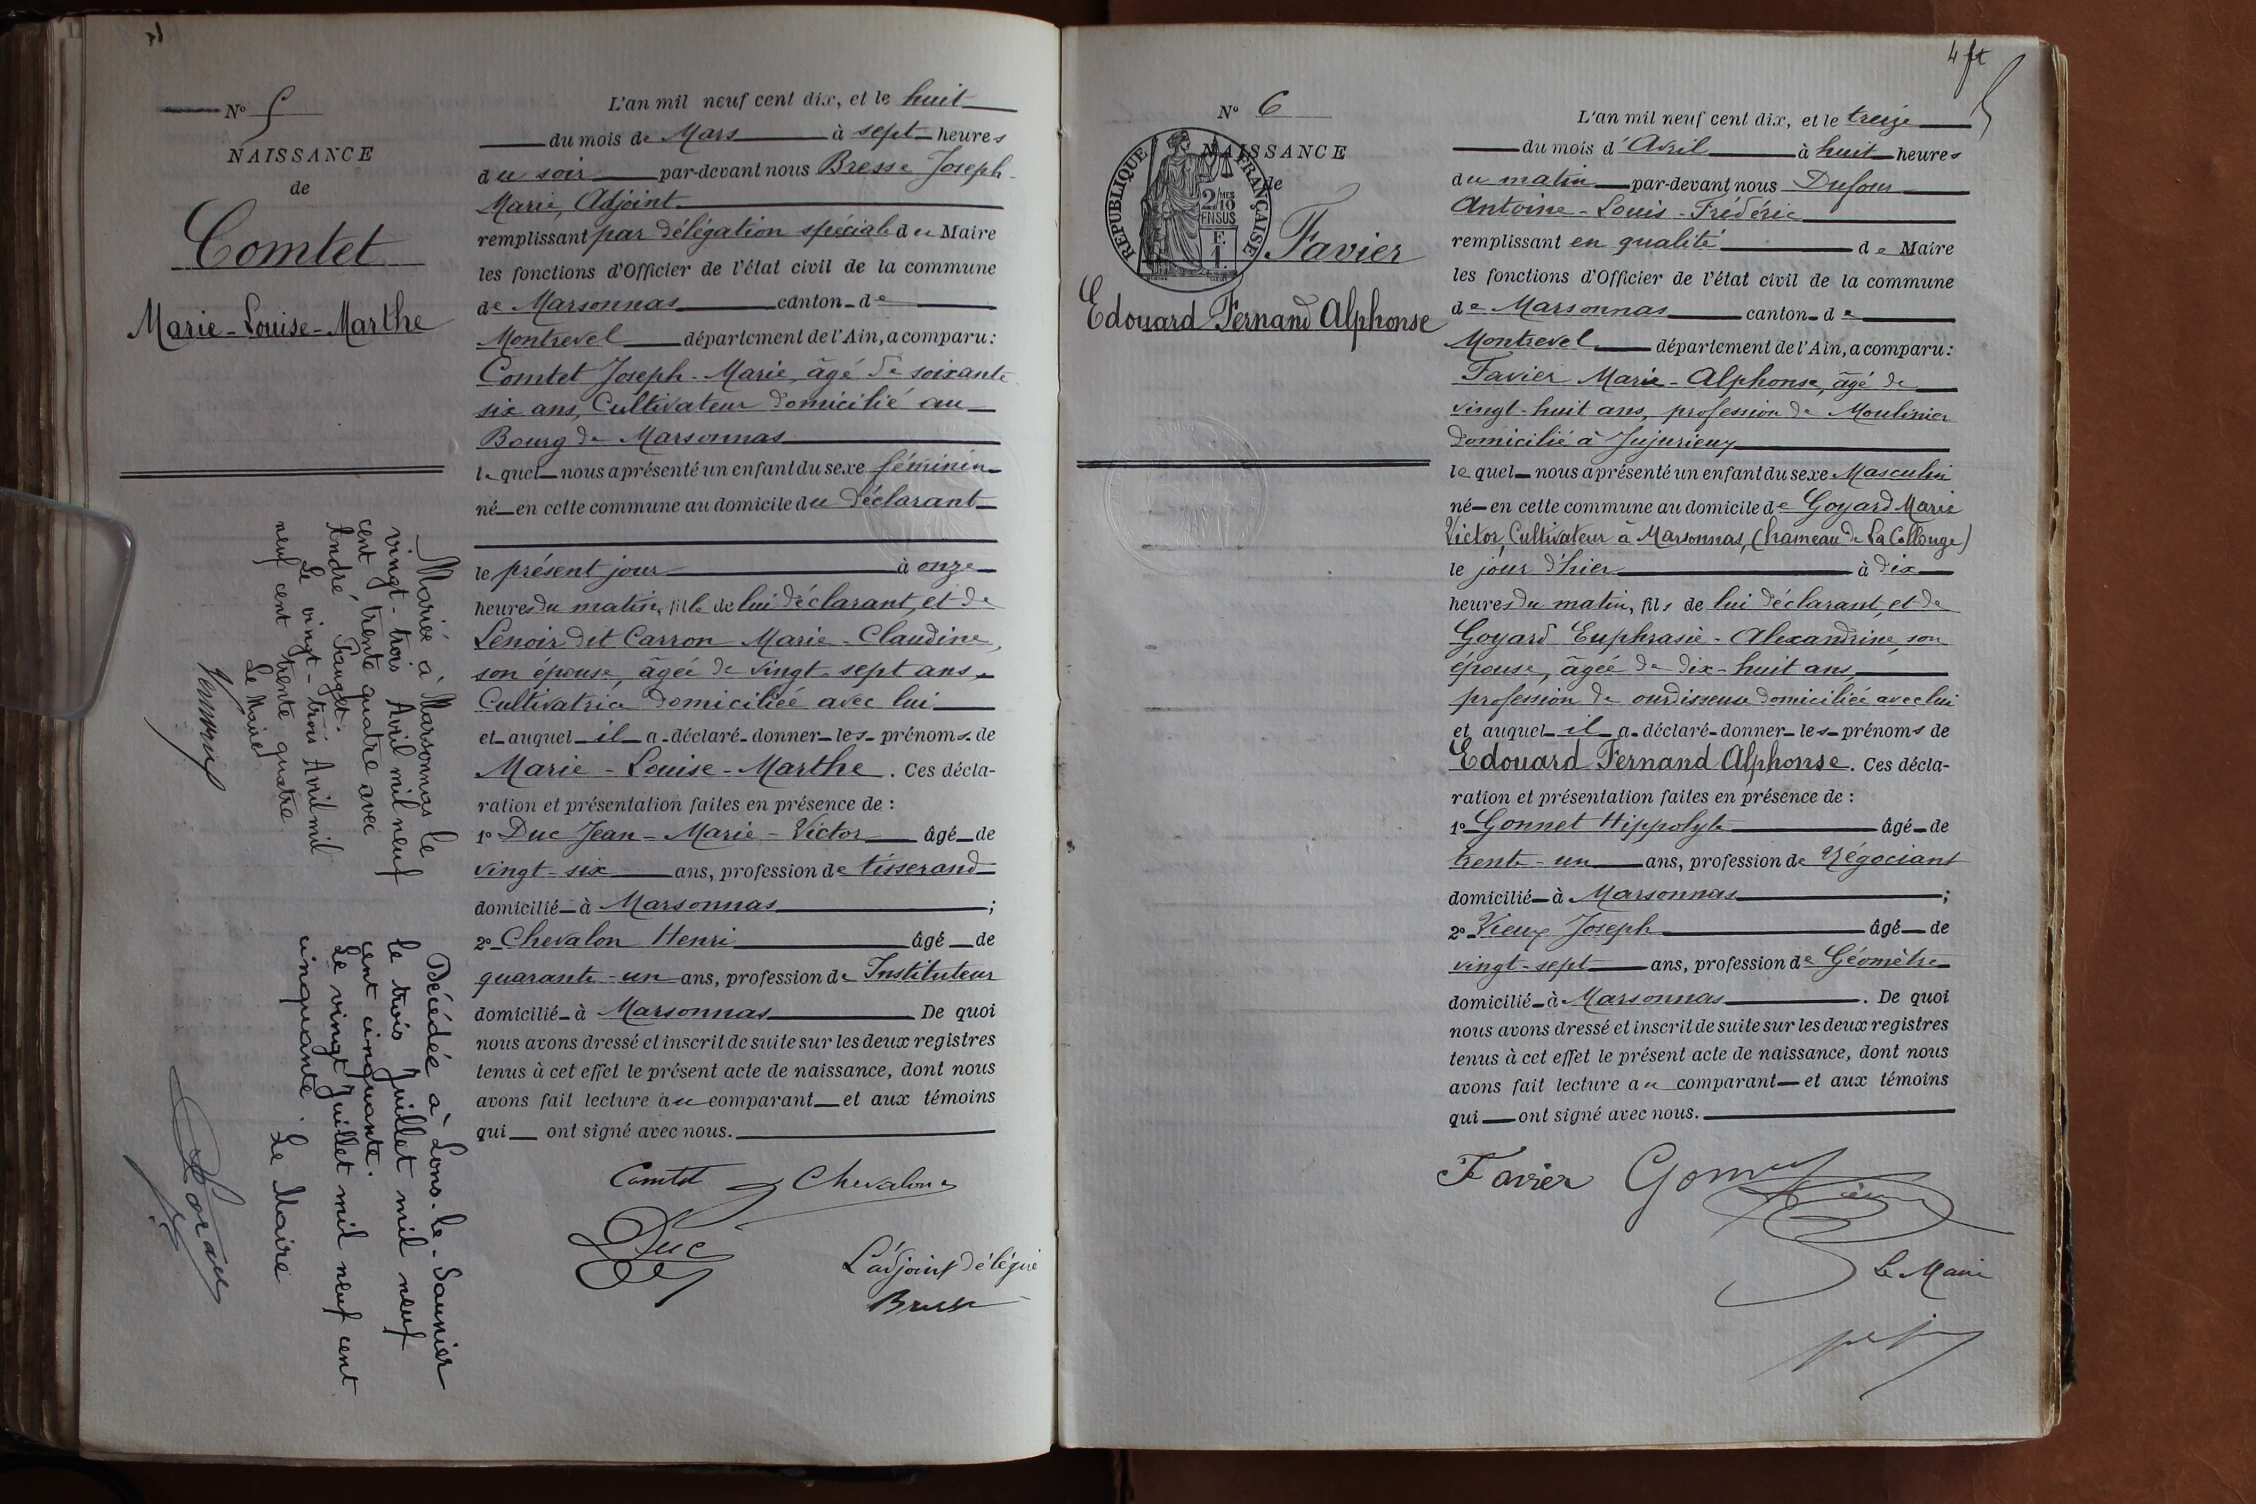 N° 5
NAISSANCE
de
Comtet
Marie-Louise-Marthe
L'an mil neuf cent dix, et le huit
du mois de Mars à sept heures
du soir par-devant nous Bresse Joseph-
Marie, Adjoint
remplissant par délégation spéciale du Maire
les fonctions d'Officier de l'état civil de la commune
de Marsonnas canton de
Montrevel département de l'Ain, a comparu:
Comtet Joseph-Marie, âgé de soixante
six ans, Cultivateur domicilié au
Bourg de Marsonnas
lequel nous a présenté un enfant du sexe féminin
né en cette commune au domicile du déclarant
le présent jour à onze
heures du matin, fille de lui déclarant, et de
Lenoir dit Carron Marie-Claudine,
son épouse, âgée de vingt-sept ans
Cultivatrice domiciliée avec lui
et auquel il a déclaré donner les prénoms de
Marie-Louise-Marthe. Ces décla-
ration et présentation faites en présence de :
1° Duc Jean-Marie-Victor âgé de
vingt-six ans, profession de tisserand
domicilié à Marsonnas ;
2° Chevalon Henri âgé de
quarante-un ans, profession de Instituteur
domicilié à Marsonnas De quoi
nous avons dressé et inscrit de suite sur les deux registres
tenus à cet effet le présent acte de naissance, dont nous
avons fait lecture au comparant et aux témoins
qui ont signé avec nous.
Comtet Chevalon
Duc
L'adjoint délégué
Bresse
Mariée à Marsonnas le
vingt-trois Avril mil neuf
cent trente quatre avec
André Pauget.
Le vingt-trois Avril mil
neuf cent trente quatre
Le Maire
Décédée à Lons-le-Saunier
le trois Juillet mil neuf
cent cinquante.
Le vingt Juillet mil neuf cent
cinquante. Le Maire
4 ft
N° 6
NAISSANCE
de
RÉPUBLIQUE FRANÇAISE
2/10
EN SUS
F.
1.
Favier
Edouard Fernand Alphonse
L'an mil neuf cent dix, et le treize
du mois d'Avril à huit heures
du matin par-devant nous Dufour
Antoine-Louis-Frédéric
remplissant en qualité de Maire
les fonctions d'Officier de l'état civil de la commune
de Marsonnas canton de
Montrevel département de l'Ain, a comparu:
Favier Marie-Alphonse, âgé de
vingt-huit ans, profession de Moulinier
domicilié à Jujurieux
lequel nous a présenté un enfant du sexe Masculin
né en cette commune au domicile de Goyard Marie
Victor, Cultivateur à Marsonnas, (hameau de La Collonge)
le jour d'hier à dix
heures du matin, fils de lui déclarant, et de
Goyard Euphrasie-Alexandrine, son
épouse, âgée de dix-huit ans,
profession de ourdisseuse domiciliée avec lui
et auquel il a déclaré donner les prénoms de
Edouard Fernand Alphonse. Ces décla-
ration et présentation faites en présence de :
1° Gonnet Hippolyte âgé de
trente-un ans, profession de Négociant
domicilié à Marsonnas ;
2° Vieux Joseph âgé de
vingt-sept ans, profession de Géomètre
domicilié à Marsonnas. De quoi
nous avons dressé et inscrit de suite sur les deux registres
tenus à cet effet le présent acte de naissance, dont nous
avons fait lecture au comparant et aux témoins
qui ont signé avec nous.
Favier Gonnet
Le Maire